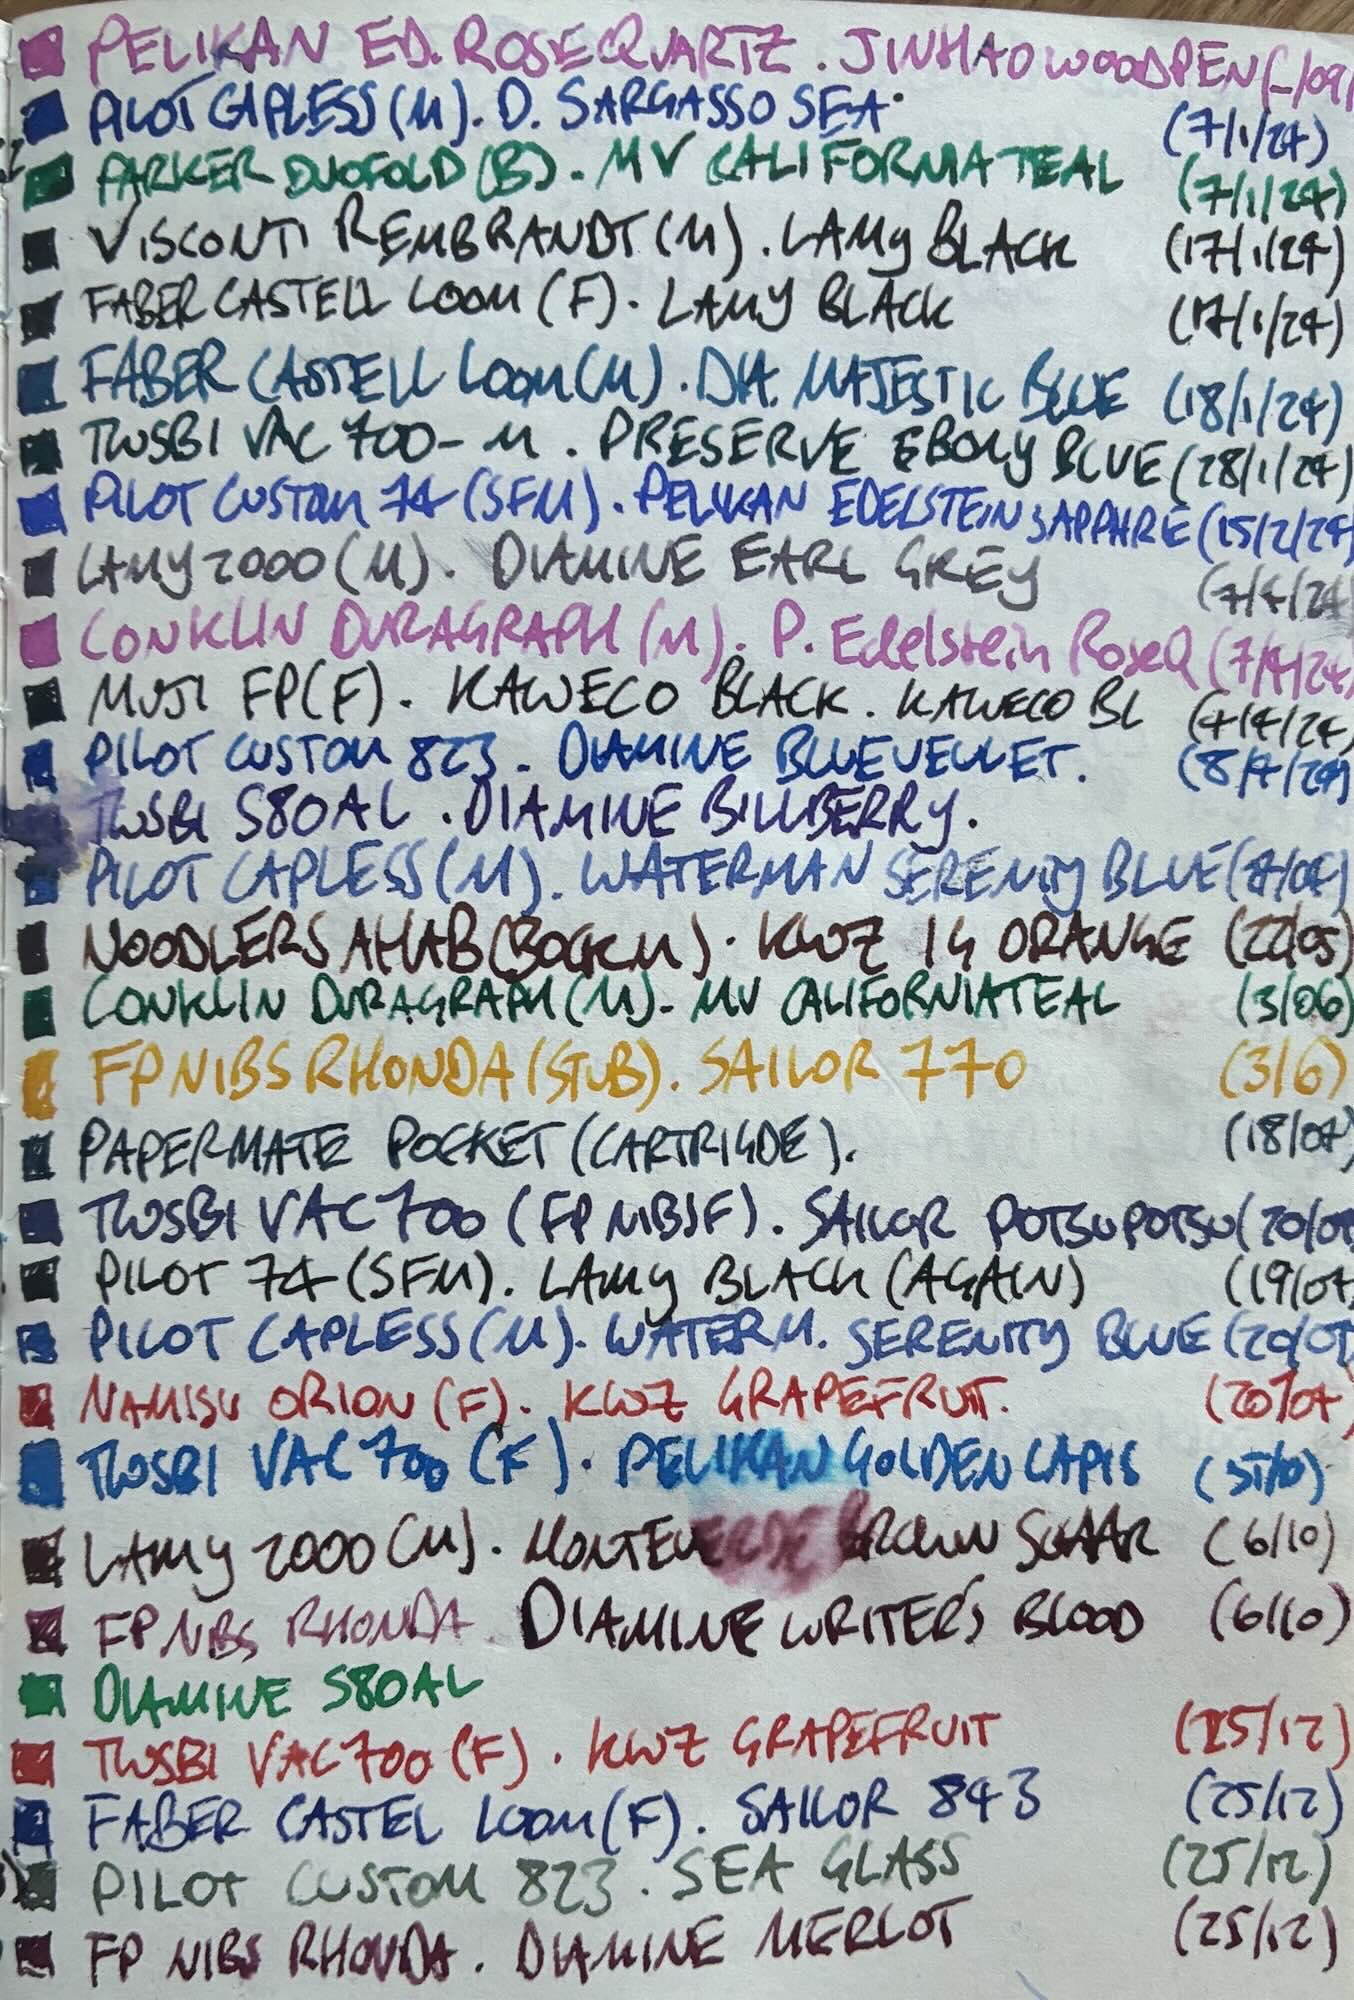 PELIKAN ED. ROSEQUARTZ. JINHAO WOODPEN (-/09/
PILOT CAPLESS (M). D. SARGASSO SEA (7/1/24)
PARKER DUOFOLD (B). MV CALIFORNIA TEAL (7/1/24)
VISCONTI REMBRANDT (M). LAMY BLACK (17/1/24)
FABER CASTELL LOOM (F). LAMY BLACK (17/1/24)
FABER CASTELL LOOM (M). DIA. MAJESTIC BLUE (18/1/24)
TWSBI VAC 700-M. PRESERVE EBONY BLUE (28/1/24)
PILOT CUSTOM 74 (SFM). PELIKAN EDELSTEIN SAPPHRE (15/2/24
LAMY 2000 (M). DIAMINE EARL GREY (7/4/24
CONKLIN DURAGRAPH (M). P. Edelstein RoseQ (7/4/24
MUJI FP (F). KAWECO BLACK. KAWECO BL (4/4/24
PILOT CUSTOM 823. DIAMINE BLUEVELVET. (8/4/24)
TWSBI 580AL. DIAMINE BILLBERRY.
PILOT CAPLESS (M). WATERMAN SERENITY BLUE
NOODLERS AHAB (BOCK M). KWZ IG ORANGE (22/05)
CONKLIN DURAGRAPH (M). MV CALIFORNIA TEAL (3/06)
FPNIBS RHONDA (STUB). SAILOR 770 (3/6)
PAPERMATE POCKET (CARTRIGDE). (18/07)
TWSBI VAC 700 (FPNIBSF). SAILOR POTSUPOTSU (20/07
PILOT 74 (SFM). LAMY BLACK (AGAIN) (19/07
PILOT CAPLESS (M). WATERM. SERENITY BLUE (20/07
NAMISU ORION (F). KWZ GRAPEFRUIT. (20/07)
TWSBI VAC 700 (F). PELIKAN GOLDEN LAPIS (5/10)
LAMY 2000 (M). MONTEVERDE BROWN SUGAR (6/10)
FPNIBS RHONDA DIAMINE WRITER'S BLOOD (6/10)
DIAMINE 580AL
TWSBI VAC 700 (F). KWZ GRAPEFRUIT (25/12)
FABER CASTEL LOOM (F). SAILOR 843 (25/12)
PILOT CUSTOM 823. SEA GLASS (25/12)
FP NIBS RHONDA. DIAMINE MERLOT (25/12)